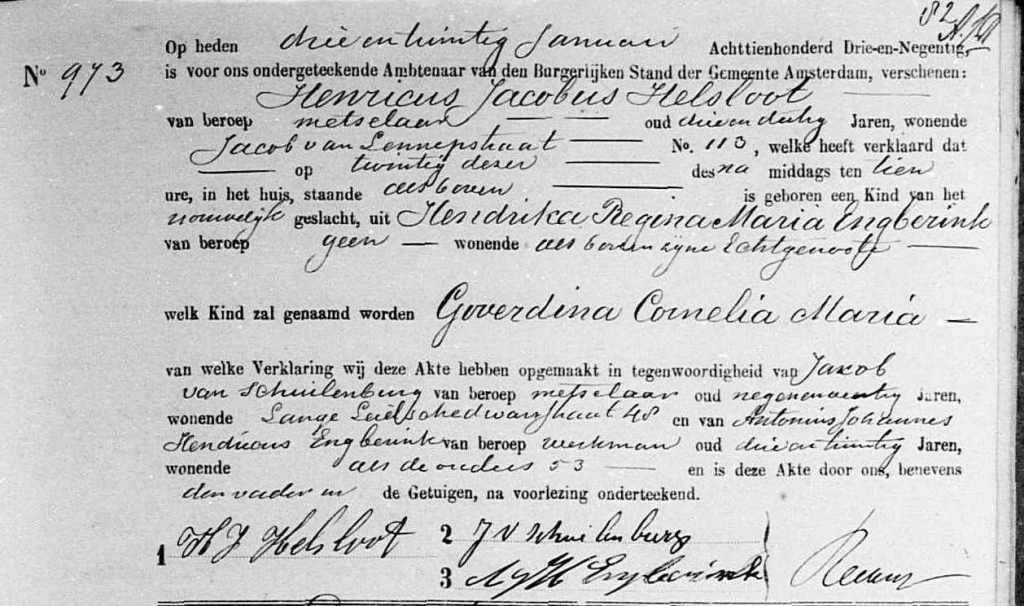 82
Op heden drie en twintig Januari Achttienhonderd Drie-en-Negentig,
No 973 is voor ons ondergeteekende Ambtenaar van den Burgerlijken Stand der Gemeente Amsterdam, verschenen:
Henricus Jacobus Helsloot
van beroep metselaar oud drieendertig Jaren, wonende
Jacob van Lennepstraat No. 113, welke heeft verklaard dat
op twintig dezer des na middags ten tien
ure, in het huis, staande als boven is geboren een Kind van het
vrouwelijk geslacht, uit Hendrika Regina Maria Engberink
van beroep geen wonende als boven zyne Echtgenoote
welk Kind zal genaamd worden Goverdina Cornelia Maria
van welke Verklaring wij deze Akte hebben opgemaakt in tegenwoordigheid van Jakob
van Schuilenburg van beroep metselaar oud negenenveertig Jaren,
wonende Lange Leidschedwarsstraat 48 en van Antonius Johannes
Hendricus Engberink van beroep werkman oud drieentwintig Jaren,
wonende als de ouders 53 en is deze Akte door ons, benevens
den vader en de Getuigen, na voorlezing onderteekend.
1 H J Helsloot 2 J v Schuilenburg
3 A J H Engberink